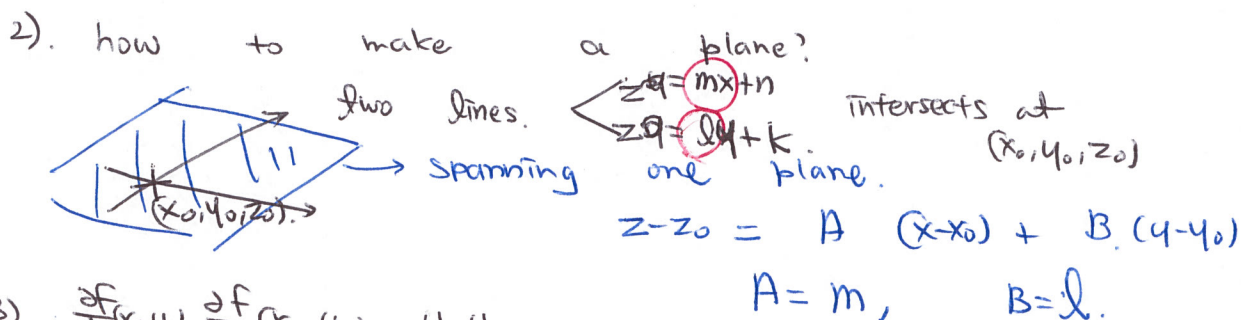 2). how to make a plane?
two lines. z = mx+n
z = ly + k. intersects at (x₀, y₀, z₀)
(x₀, y₀, z₀). → spanning one plane.
z-z₀ = A (x-x₀) + B (y-y₀)
A = m, B = l.
∂f ∂f